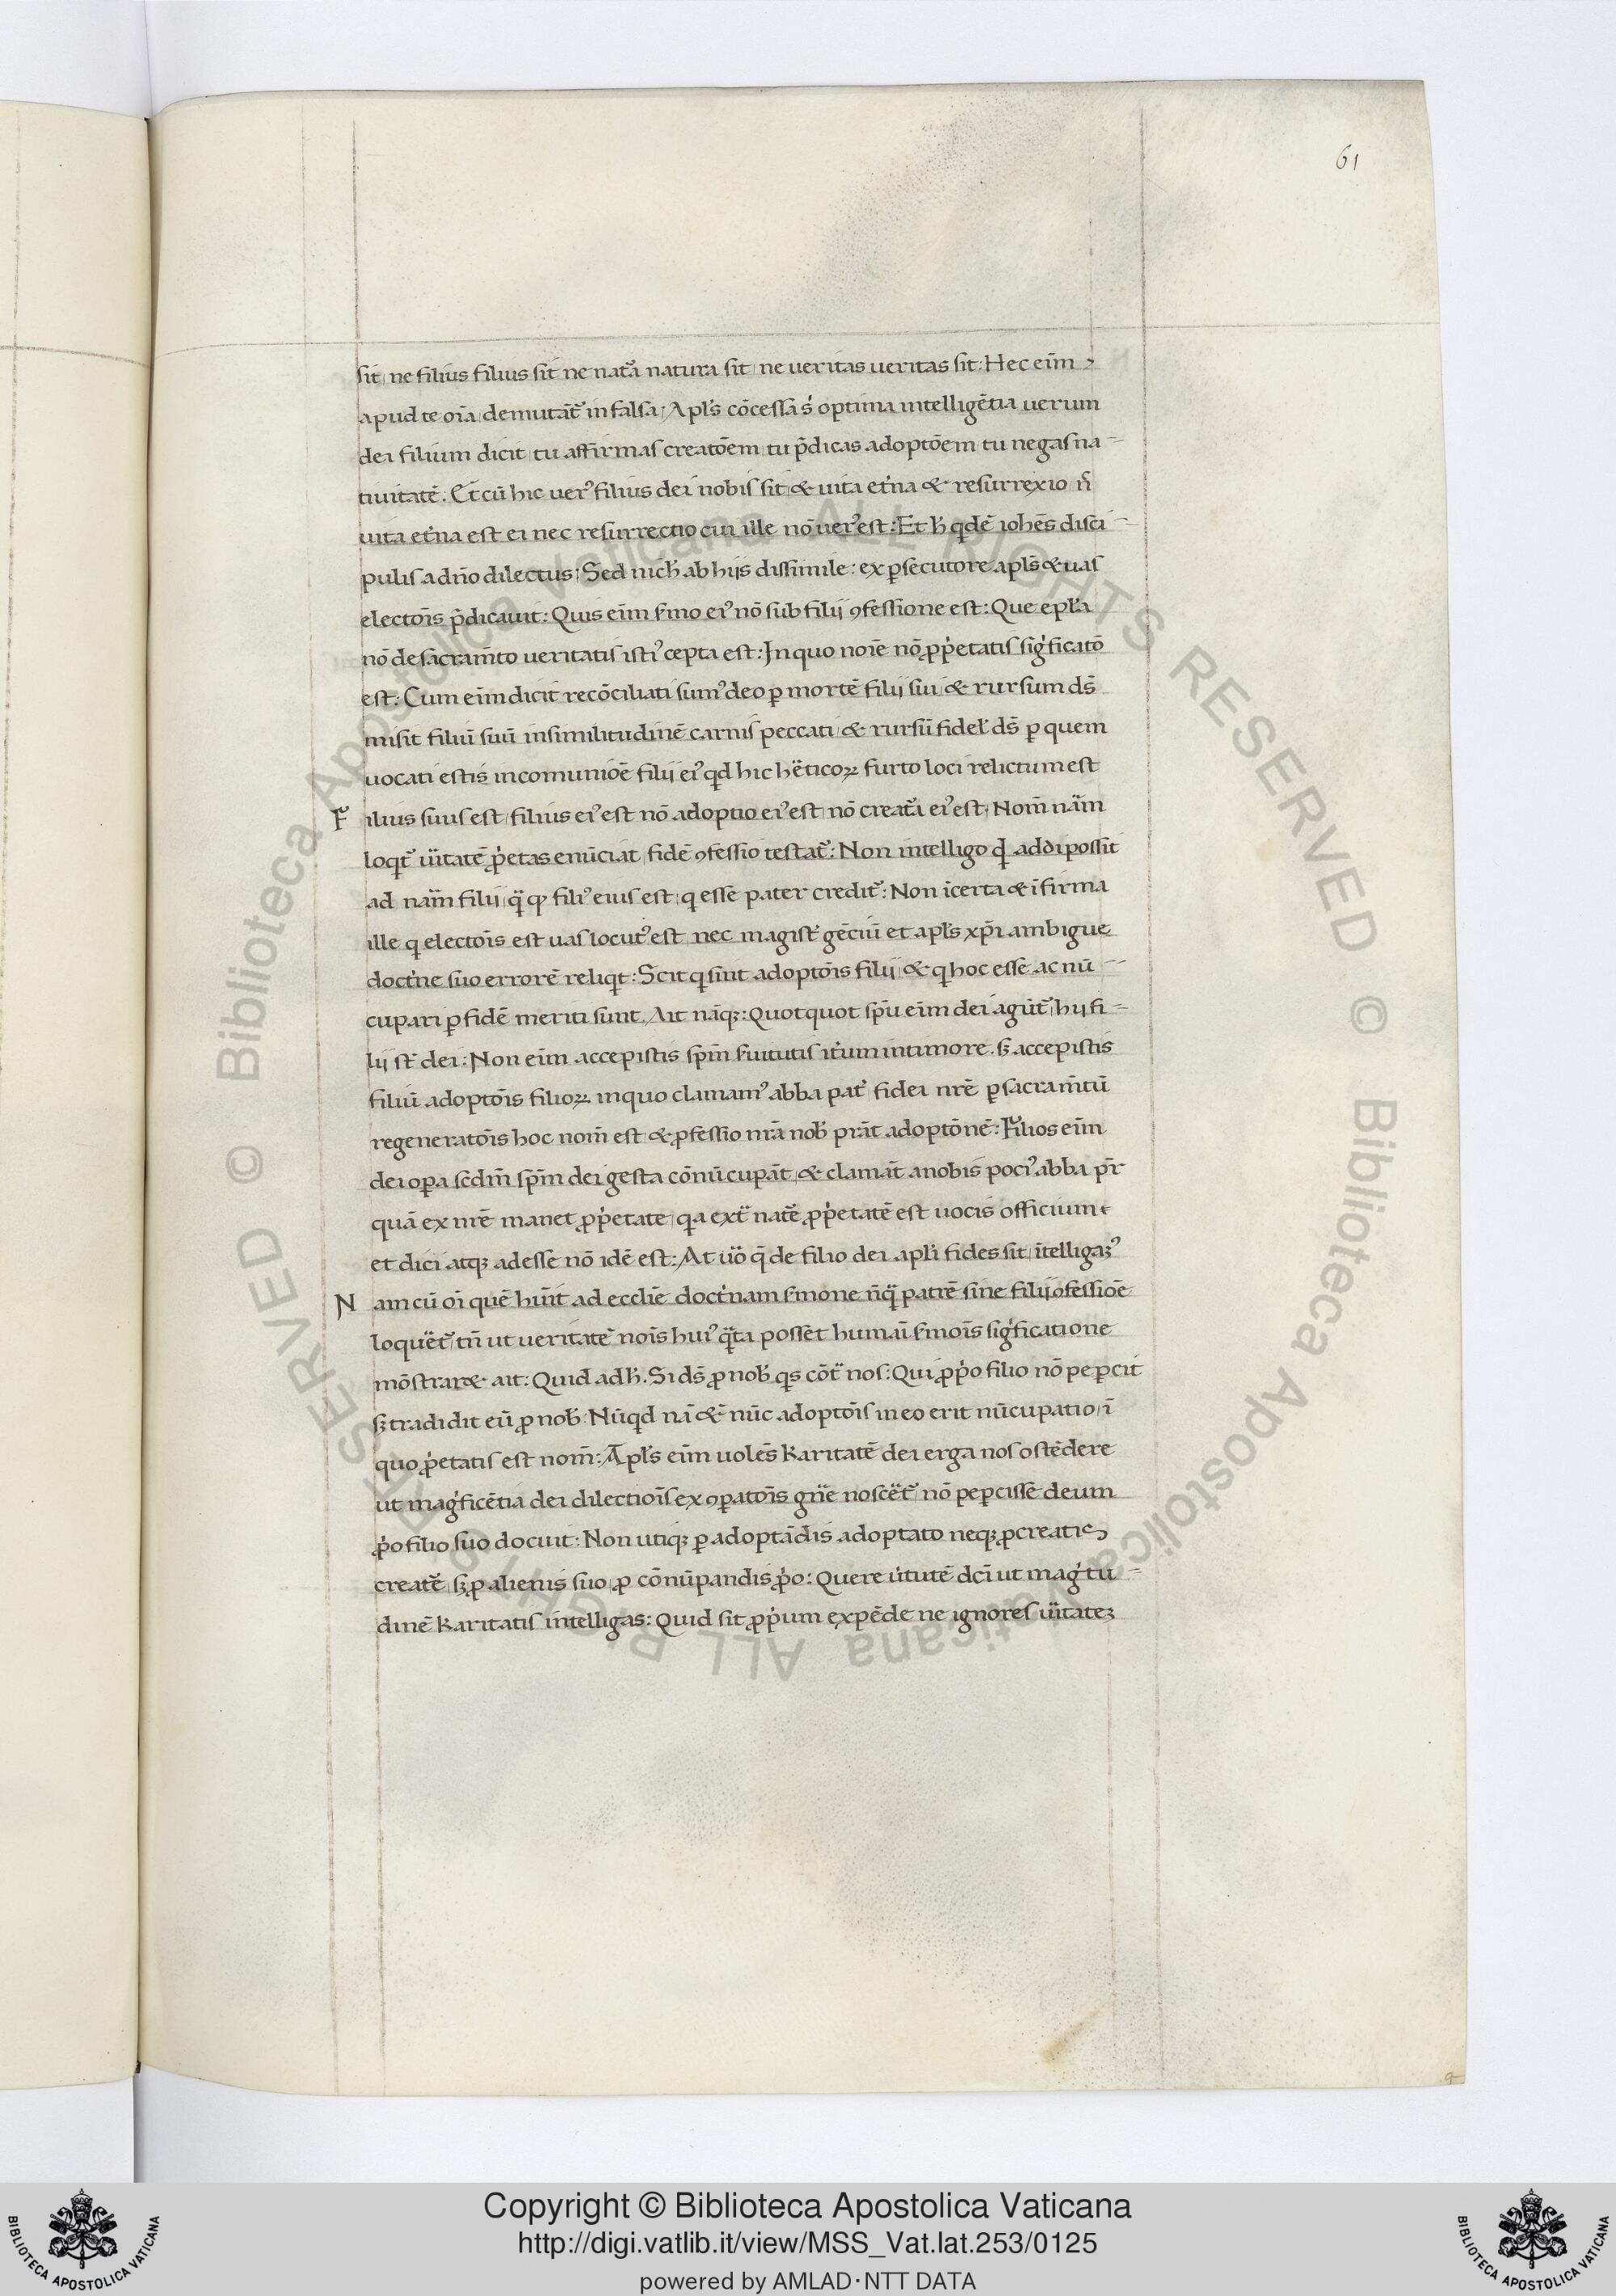 61
sit ne filius filius sit ne nat᷑a natura sit ne ueritas ueritas sit: Hec eīm
apud te oīa demutāt᷑ in falsa: Apl̄s cōcessa s optima intelligētia uerum
dei filium dicit tu affirmas creatōem tu p̄dicas adoptōem tu negas na-
tiuitatē. Et cū hic uerꝰ filius dei nobis sit & uita et̓na & resurrexio n̄
uita et̓na est ei nec resurrectio cui ille nō uerꝰ est: Et h̓ qͥdē ioh̄es disci-
pulis a dn̄o dilectus: Sed nich̓ ab hijs dissimile: ex ꝑsecutore apl̄s & uas
electōis p̄dicauit: Quis eīm s̓mo eiꝰ nō sub filij ꝯfessione est: Que epl̓a
nō de sacram̄to ueritatis istiꝰ cepta est: In quo noīe nō ꝓp̓etatis sig̓ficatō
est: Cum eīm dicit recōciliati sumꝰ deo ꝑ mortē filij sui & rursum ds̄
misit filiū suū in similitudinē carnis peccati & rursū fidel̓ ds̄ ꝑ quem
uocati estis in comuniōe filij eiꝰ qͥd hic hēticoꝝ furto loci relictum est
Filius suus est filius eiꝰ est nō adoptio eiꝰ est nō creat᷑a eiꝰ est. Nom̄ nām
loqͥt᷑ ūitatē ꝓp̓etas enūciat fidē ꝯfessio testat᷑: Non intelligo qͥd addi possit
ad nām filij qͣ qꝫ filiꝰ eius est qͥ esse pater credit᷑: Non īcerta & īfirma
ille qͥ electōis est uas locutꝰ est nec magist̓ gēciū et apl̄s xp̄i ambigue
doct̓ne suo errorē reliqͥt: Scit qͥ sint adoptōis filij & qͥ hoc esse ac nū-
cupari ꝑ fidē meriti sunt. Ait nāqꝫ: Quotquot sp̄u eīm dei agūt᷑ hij fi-
lij st̄ dei: Non eīm accepistis sp̄m s̓uitutis it̓um in timore. sꝫ accepistis
filiū adoptōis filioꝝ in quo clamamꝰ abba pat̓ fidei nr̄e ꝑ sacram̄tū
regeneratōis hoc nom̄ est & ꝓfessio nr̄a nob̓ prāt adoptōnē: Filios eīm
dei oꝑa scdm̄ sp̄m dei gesta cōnūcupāt & clamāt a nobis pociꝰ abba pr̄
quā ex nr̄e manet ꝓp̓etate qͥa ext̄ natē ꝓp̓etatē est uocis officium
et dici atqꝫ adesse nō idē est: At uō qͥ de filio dei apl̓i fides sit ītelligamꝰ
Nam cū oī quē hūit ad eccl̄ie doct̓nam s̓mone nūqͣ patrē sine filij ꝯfessiōe
loquēt᷑ tn̄ ut ueritatē nōis huiꝰ qͣta posset humāi s̓mōis sig̓ficatione
mōstraret ait: Quid ad h̓. Si ds̄ ꝓ nob̓ qͥs cōt̄ nos: Qui ꝓp̓o filio nō peꝑcit
sꝫ tradidit eū ꝓ nob̓: Nūqͥd nā & nūc adoptōis in eo erit nūcupatio ī
quo ꝓp̓etatis est nom̄: Apl̄s eīm uolēs karitatē dei erga nos ostēdere
ut mag̓ficētia dei dilectiōis ex ꝯꝑatōis gn̄e noscēt᷑ nō peꝑcisse deum
ꝓp̓o filio suo docuit: Non utiqꝫ ꝑ adoptādis adoptato neqꝫ ꝓ creatis
creatē sꝫ ꝓ alienis suo ꝓ cōnūpandis ꝓp̓o: Quere u̓tutē dc̄i ut mag̓tu-
dinē karitatis intelligas: Quid sit ꝓp̓ium expēde ne ignores ūitatez
Copyright © Biblioteca Apostolica Vaticana
http://digi.vatlib.it/view/MSS_Vat.lat.253/0125
powered by AMLAD·NTT DATA
BIBLIOTECA APOSTOLICA VATICANA
BIBLIOTECA APOSTOLICA VATICANA